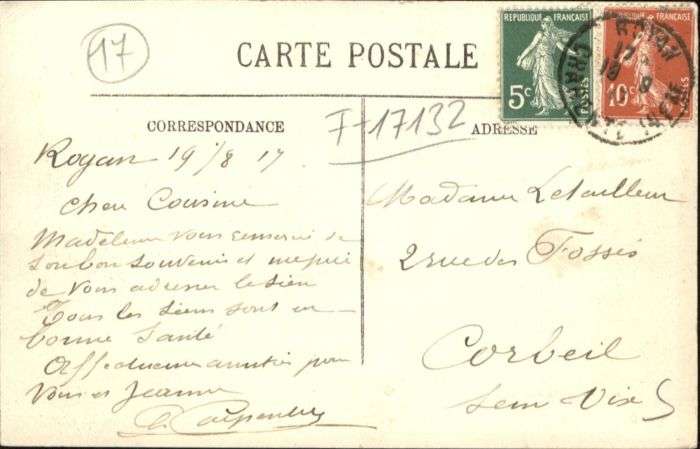 17
CARTE POSTALE
REPUBLIQUE FRANÇAISE
5c
POSTES
REPUBLIQUE FRANÇAISE
10c
POSTES
ROYAN
F-17132
CORRESPONDANCE
ADRESSE
Royan 19/8 17
Chère Cousine
Madeleine vous remercie de
son bon souvenir et me prie
de vous adresser le sien
Tous les siens sont en
bonne santé
Affectueuses amitiés pour
vous et Jeanne
Carpentier
Madame Letailleur
2 rue des Fossés
Corbeil
Seine